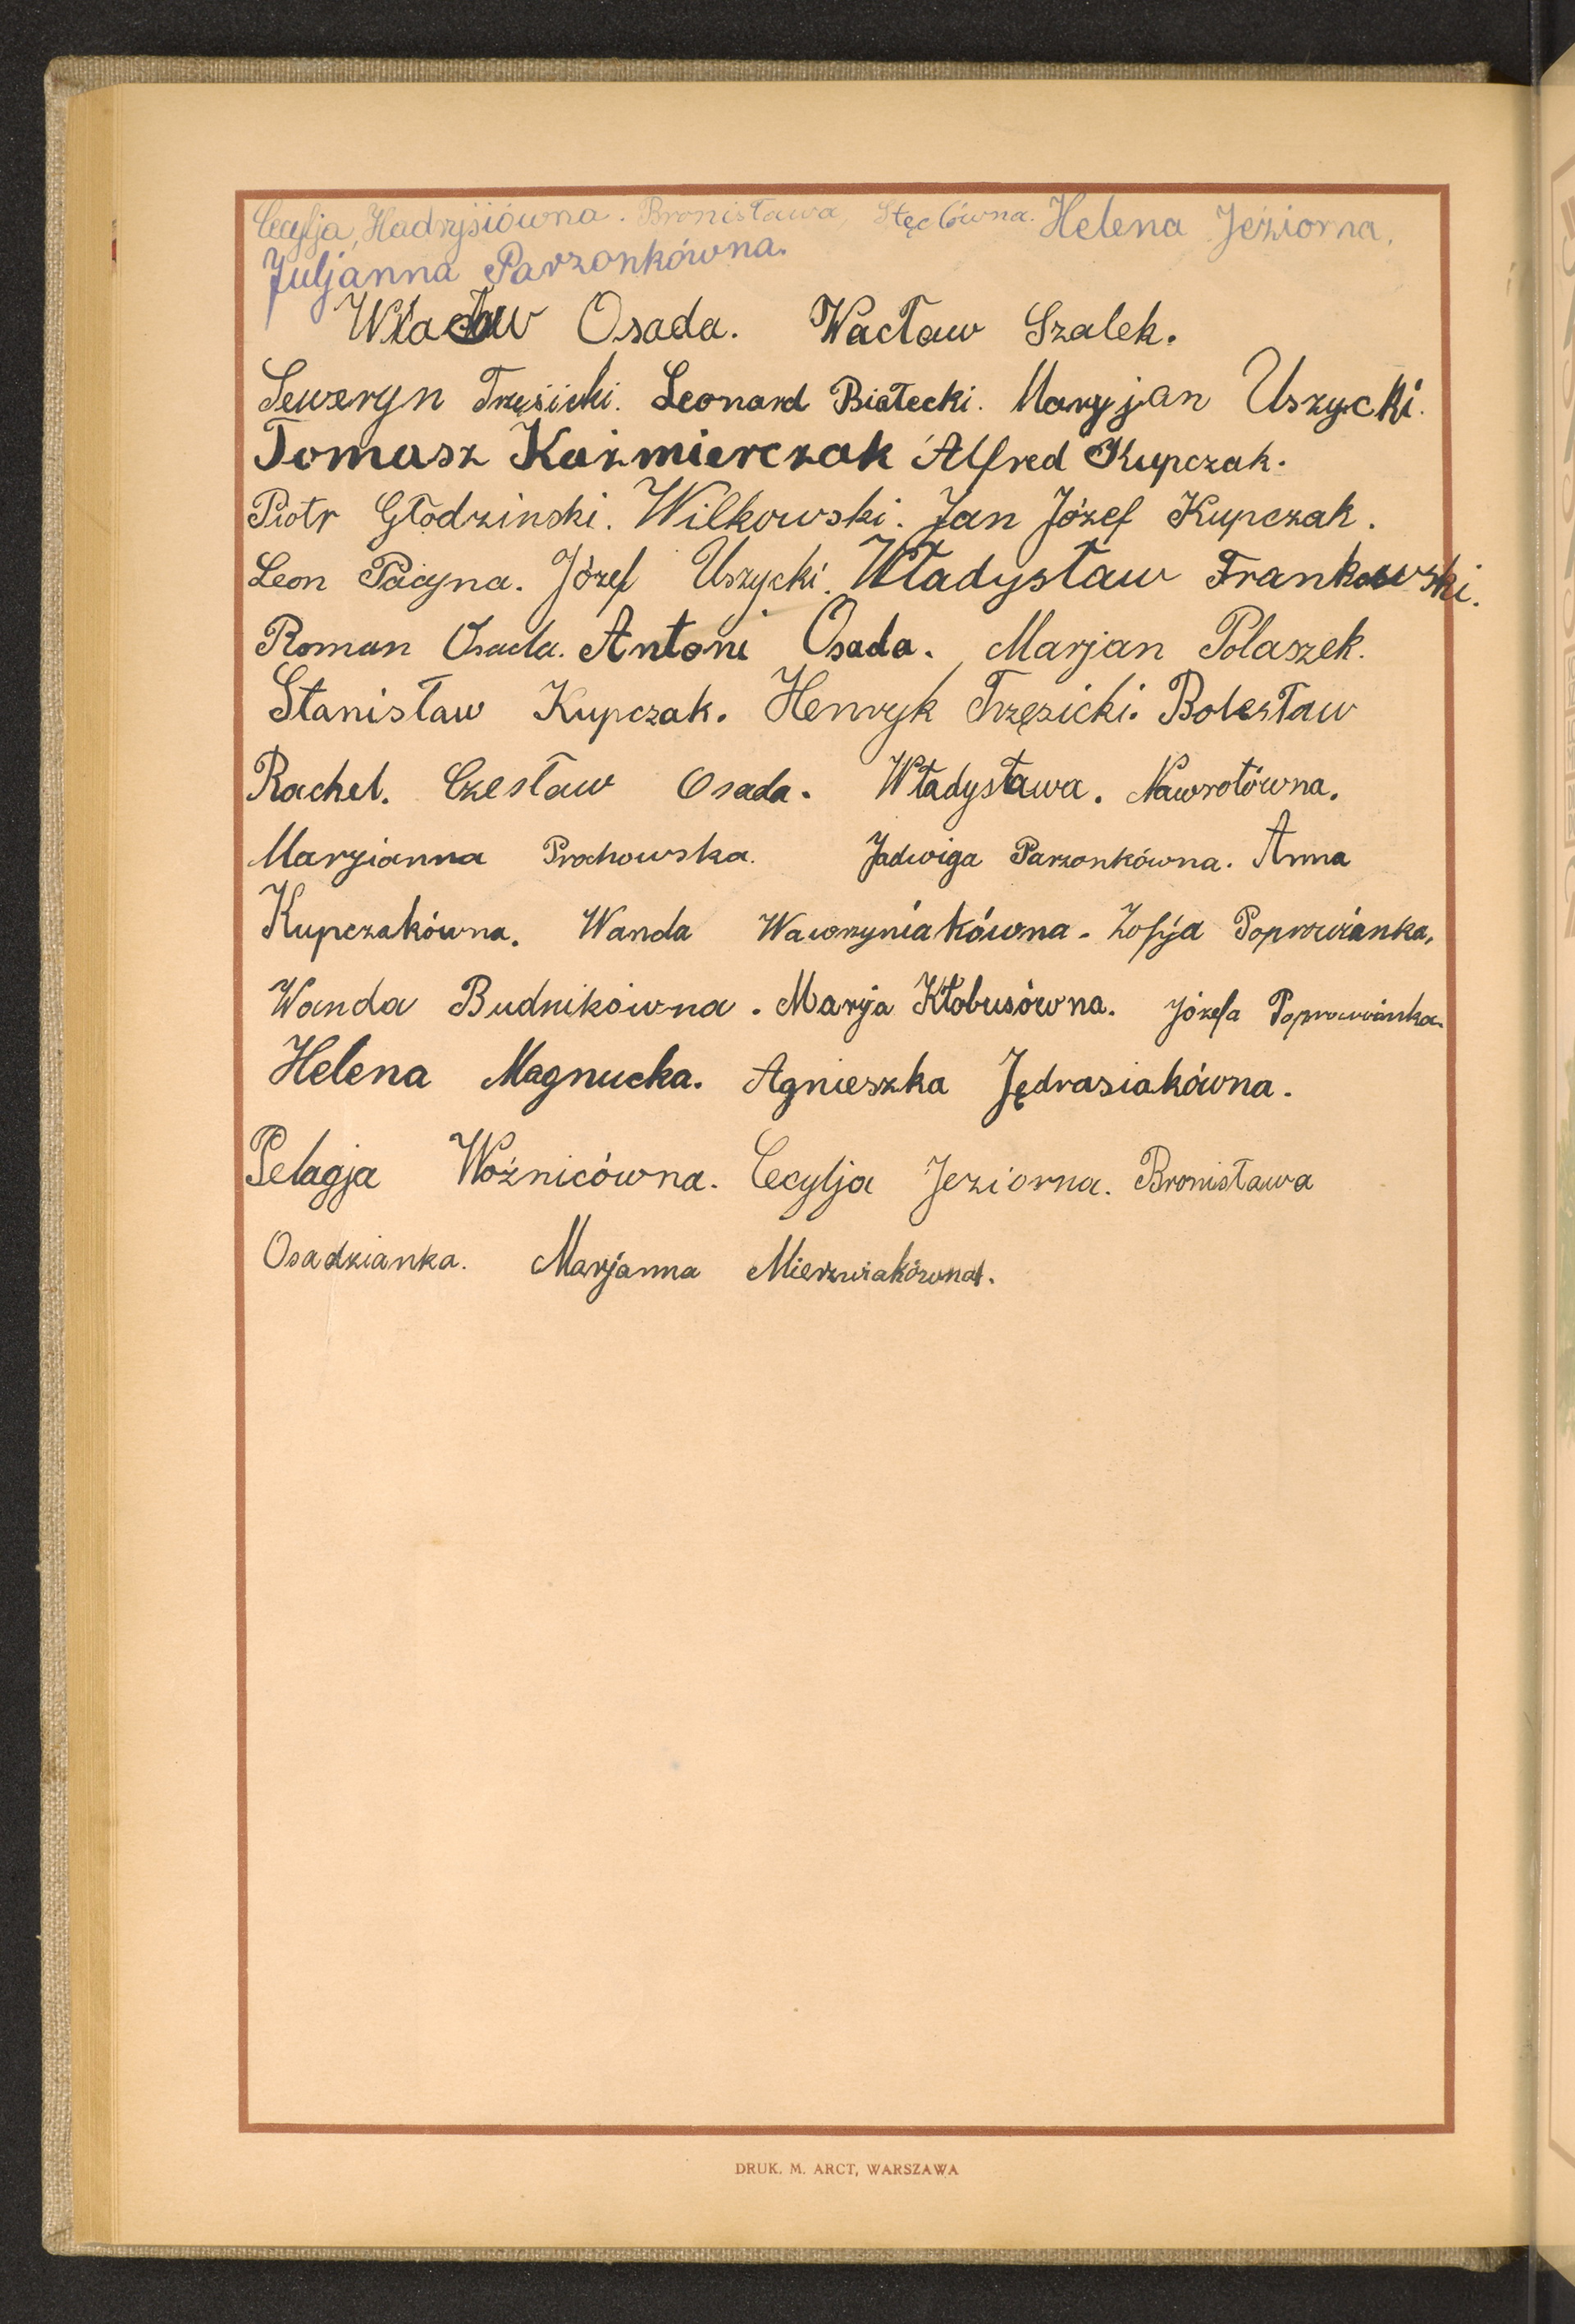 Cecylja, Hadrysiówna. Bronisława, Stęclówna. Helena Jeziorna,
Juljanna Parzonkówna.
Wacław Osada. Wacław Szalek.
Seweryn Trzęsicki. Leonard Białecki. Maryjan Uszycki.
Tomasz Kaźmierczak Alfred Kupczak.
Piotr Głodzinski. Wilkowski. Jan Józef Kupczak.
Leon Pacyna. Józef Uszycki. Władysław Frankowski.
Roman Osada. Antoni Osada. Marjan Polaszek.
Stanisław Kupczak. Henryk Trzęsicki. Bolesław
Rachel. Czesław Osada. Władysława. Nawrotówna.
Maryianna Prochowska. Jadwiga Parzonkówna. Anna
Kupczakówna. Wanda Wawrzyniakówna. Zofija
Wanda Budnikówna. Maryja Kłobusówna. Józefa
Helena Magnucka. Agnieszka Jędrasiakówna.
Pelagja Woźnicówna. Cecylja Jeziorna. Bronisława
Osadzianka. Marjanna Mierzwiakówna.
DRUK. M. ARCT, WARSZAWA